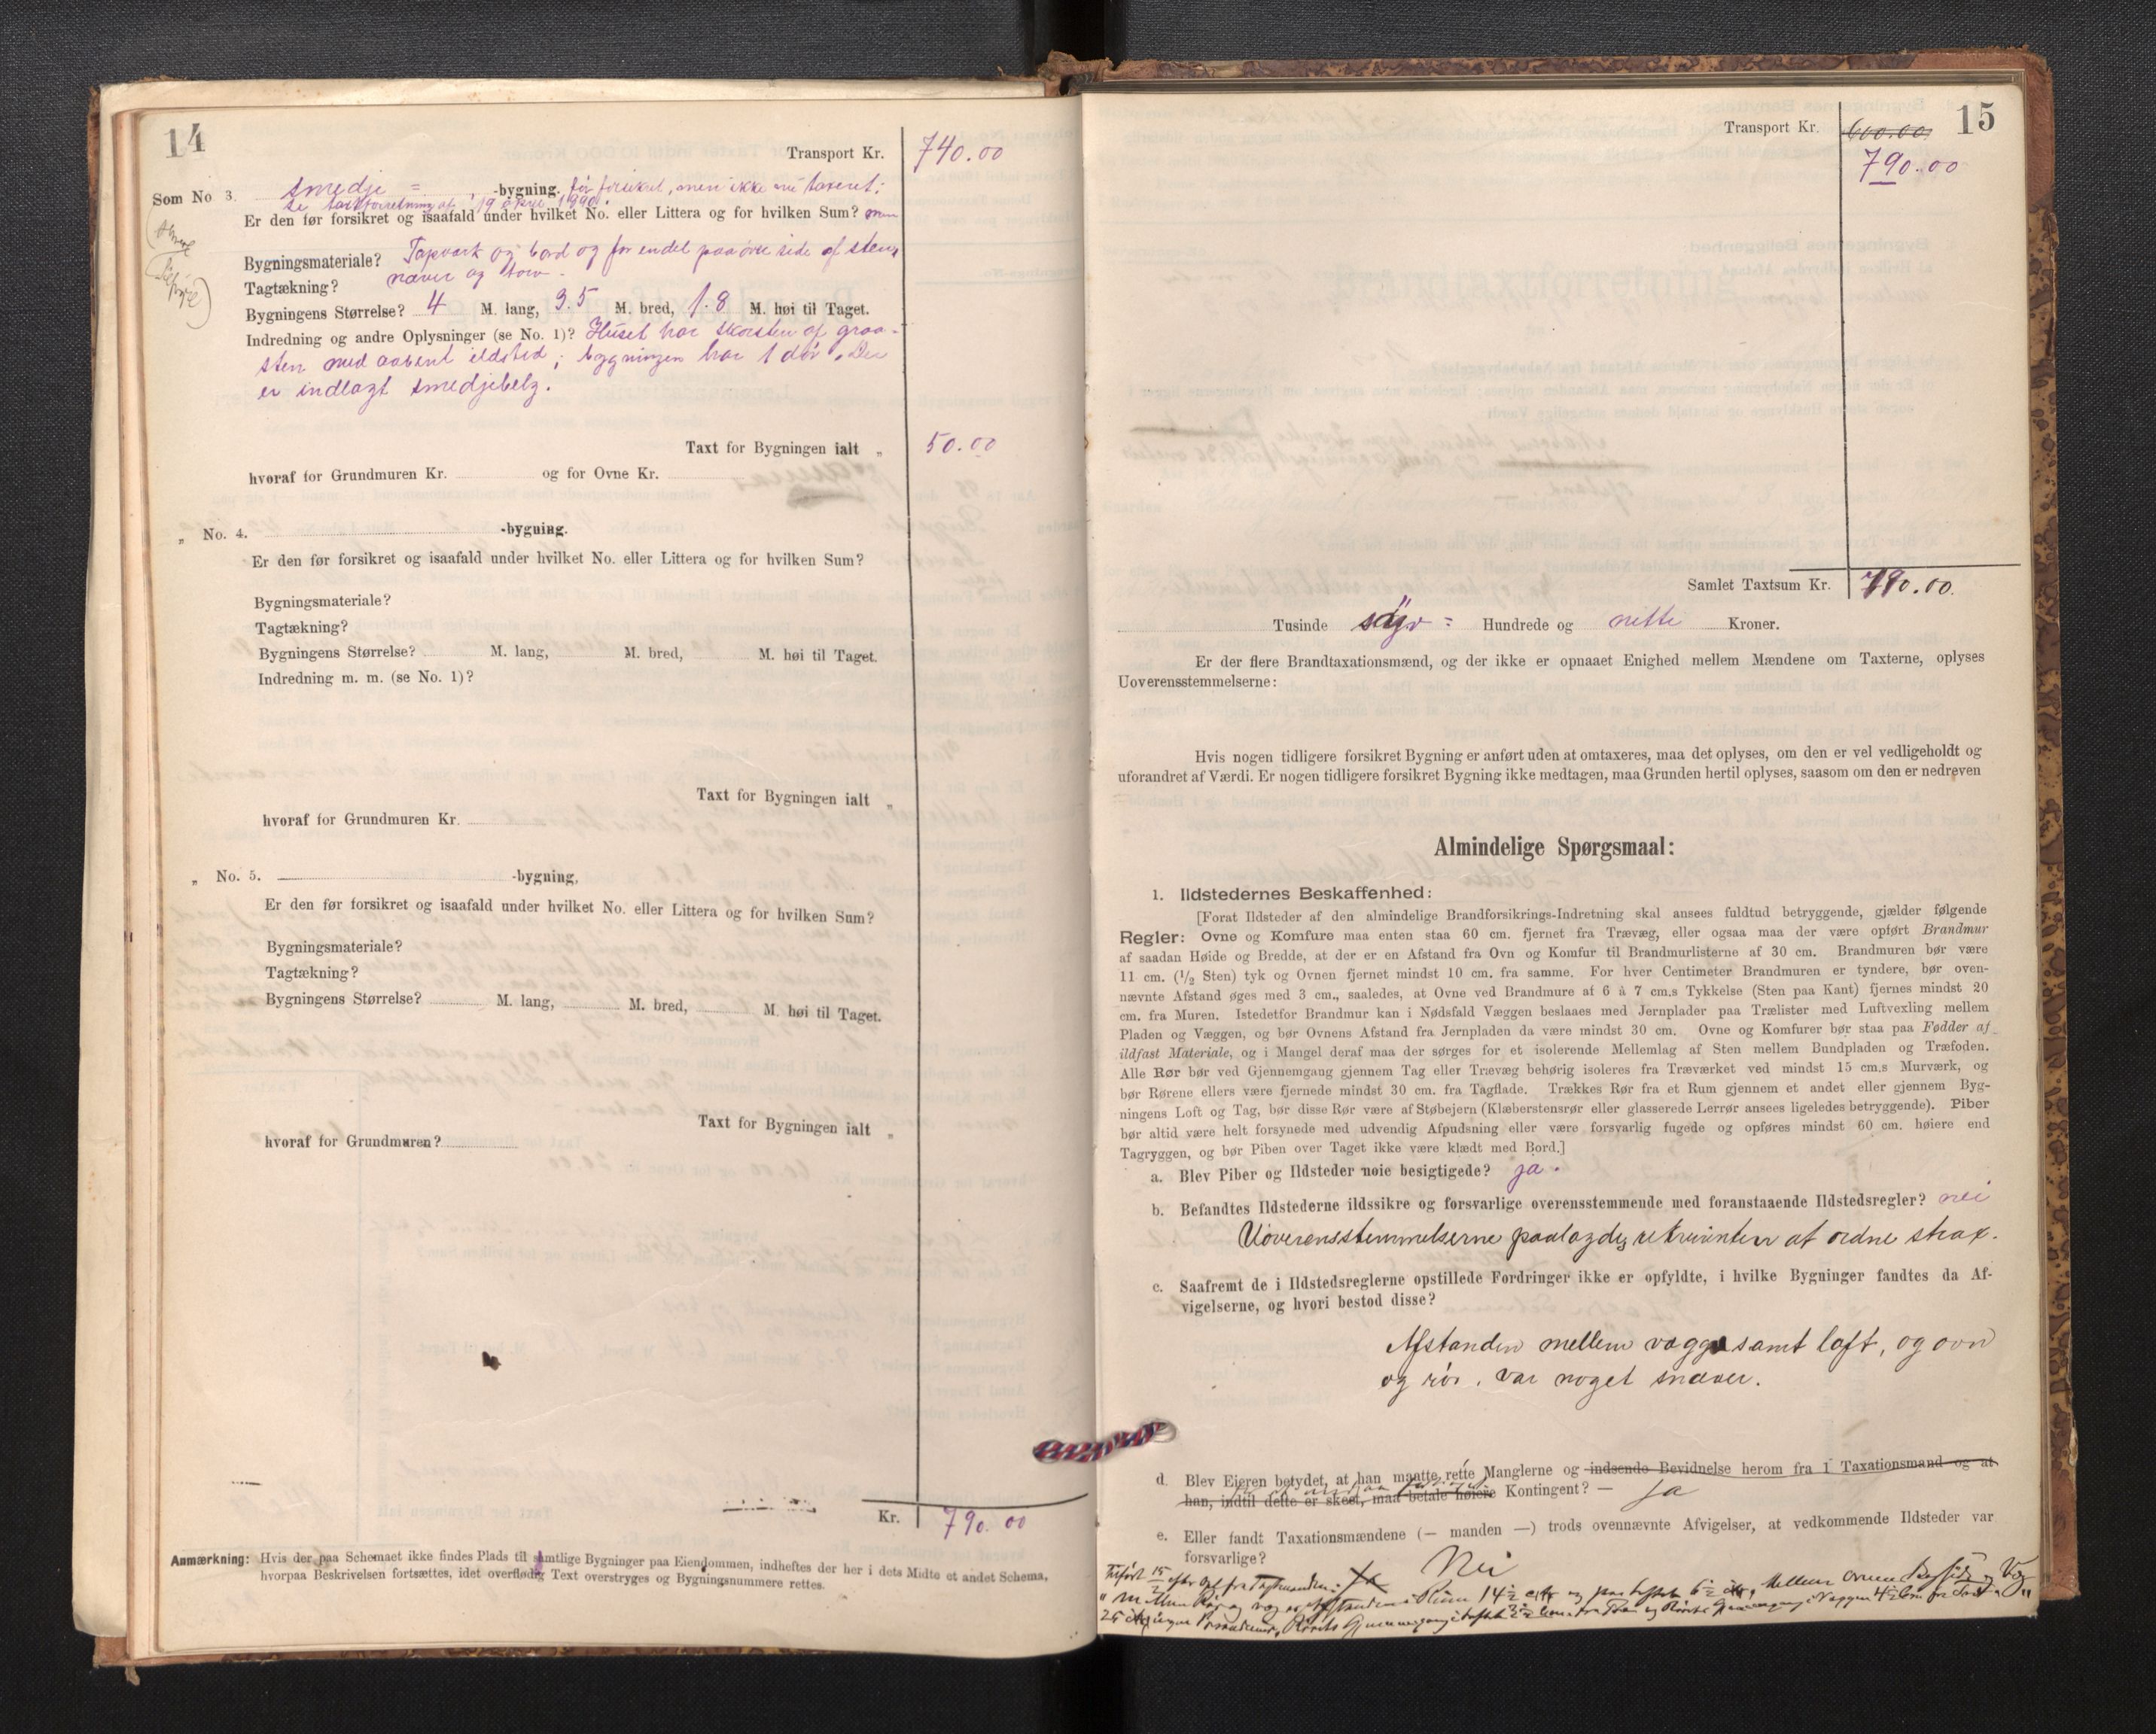 14
Transport Kr. 740.00
Som No 3. smedje = -bygning. før forsikret, men ikke nu taxeret;
se taxtforretning af 19
Er den før forsikret og isaafald under hvilket No. eller Littera og for hvilken Sum?
Bygningsmateriale? Tapværk og bord og for endel paa øvre side af sten,
næver og torv.
Tagtækning?
Bygningens Størrelse? 4 M. lang, 3.5 M. bred, 1.8 M. høi til Taget.
Indredning og andre Oplysninger (se No. 1)? Huset har skorsten af graa-
sten med aabent ildsted; bygningen har 1 dør. Der
er indlagt smedjebelg.
Taxt for Bygningen ialt „ 50.00
hvoraf for Grundmuren Kr. og for Ovne Kr.
„ No. 4. -bygning.
Er den før forsikret og isaafald under hvilket No. eller Littera og for hvilken Sum?
Bygningsmateriale?
Tagtækning?
Bygningens Størrelse? M. lang, M. bred, M. høi til Taget.
Indredning m. m. (se No. 1)?
Taxt for Bygningen ialt „
hvoraf for Grundmuren Kr.
„ No. 5. -bygning,
Er den før forsikret og isaafald under hvilket No. eller Littera og for hvilken Sum?
Bygningsmateriale?
Tagtækning?
Bygningens Størrelse? M. lang, M. bred, M. høi til Taget.
Taxt for Bygningen ialt „
hvoraf for Grundmuren?
Kr. 790.00
Anmærkning: Hvis der paa Schemaet ikke findes Plads til samtlige Bygninger paa Eiendommen, indheftes der her i dets Midte et andet Schema,
hvorpaa Beskrivelsen fortsættes, idet overflødig Text overstryges og Bygningsnummere rettes.
15
Transport Kr. 600.00
790.00
Samlet Taxtsum Kr. 790.00.
Tusinde syv = Hundrede og nitti Kroner.
Er der flere Brandtaxationsmænd, og der ikke er opnaaet Enighed mellem Mændene om Taxterne, oplyses
Uoverensstemmelserne:
Hvis nogen tidligere forsikret Bygning er anført uden at omtaxeres, maa det oplyses, om den er vel vedligeholdt og
uforandret af Værdi. Er nogen tidligere forsikret Bygning ikke medtagen, maa Grunden hertil oplyses, saasom om den er nedreven
Almindelige Spørgsmaal:
1. Ildstedernes Beskaffenhed:
[Forat Ildsteder af den almindelige Brandforsikrings-Indretning skal ansees fuldtud betryggende, gjælder følgende
Regler: Ovne og Komfure maa enten staa 60 cm. fjernet fra Trævæg, eller ogsaa maa der være opført Brandmur
af saadan Høide og Bredde, at der er en Afstand fra Ovn og Komfur til Brandmurlisterne af 30 cm. Brandmuren bør være
11 cm. (1/2 Sten) tyk og Ovnen fjernet mindst 10 cm. fra samme. For hver Centimeter Brandmuren er tyndere, bør oven-
nævnte Afstand øges med 3 cm., saaledes, at Ovne ved Brandmure af 6 à 7 cm.s Tykkelse (Sten paa Kant) fjernes mindst 20
cm. fra Muren. Istedetfor Brandmur kan i Nødsfald Væggen beslaaes med Jernplader paa Trælister med Luftvexling mellem
Pladen og Væggen, og bør Ovnens Afstand fra Jernpladen da være mindst 30 cm. Ovne og Komfurer bør staa paa Fødder af
ildfast Materiale, og i Mangel deraf maa der sørges for et isolerende Mellemlag af Sten mellem Bundpladen og Træfoden.
Alle Rør bør ved Gjennemgang gjennem Tag eller Trævæg behørig isoleres fra Træværket ved mindst 15 cm.s Murværk, og
bør Rørene ellers være fjernede mindst 30 cm. fra Tagflade. Trækkes Rør fra et Rum gjennem et andet eller gjennem Byg-
ningens Loft og Tag, bør disse Rør være af Støbejern (Klæberstensrør eller glasserede Lerrør ansees ligeledes betryggende). Piber
bør altid være helt forsynede med udvendig Afpudsning eller være forsvarlig fugede og opføres mindst 60 cm. høiere end
Tagryggen, og bør Piben over Taget ikke være klædt med Bord.]
a. Blev Piber og Ildsteder nøie besigtigede? ja.
b. Befandtes Ildstederne ildssikre og forsvarlige overensstemmende med foranstaaende Ildstedsregler? nei
Uoverensstemmelserne paalagdes rekvirenten at ordne strax.
c. Saafremt de i Ildstedsreglerne opstillede Fordringer ikke er opfyldte, i hvilke Bygninger fandtes da Af-
vigelserne, og hvori bestod disse?
Afstanden mellem vægge samt loft, og ovn
og rør, var noget snæver.
d. Blev Eieren betydet, at han maatte rette Manglerne og indsende Bevidnelse herom fra 1 Taxationsmand og at
han, indtil dette er skeet, maa betale høiere Kontingent? — Ja
e. Eller fandt Taxationsmændene (— manden —) trods ovennævnte Afvigelser, at vedkommende Ildsteder var
forsvarlige? Ja Nei